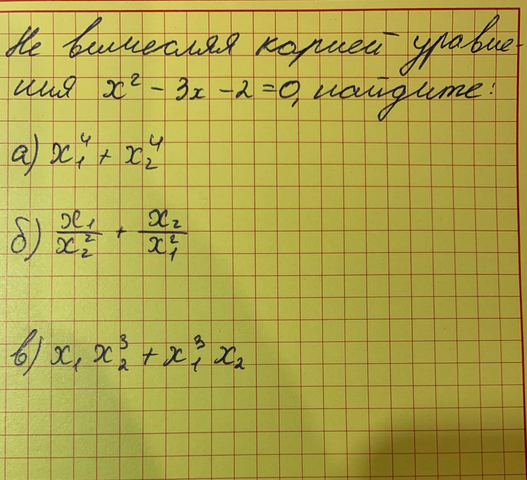 Не вычисляя корней уравне-
ния x² - 3x - 2 = 0, найдите:
а) x₁⁴ + x₂⁴
б) x₁/x₂² + x₂/x₁²
в) x₁ x₂³ + x₁³ x₂